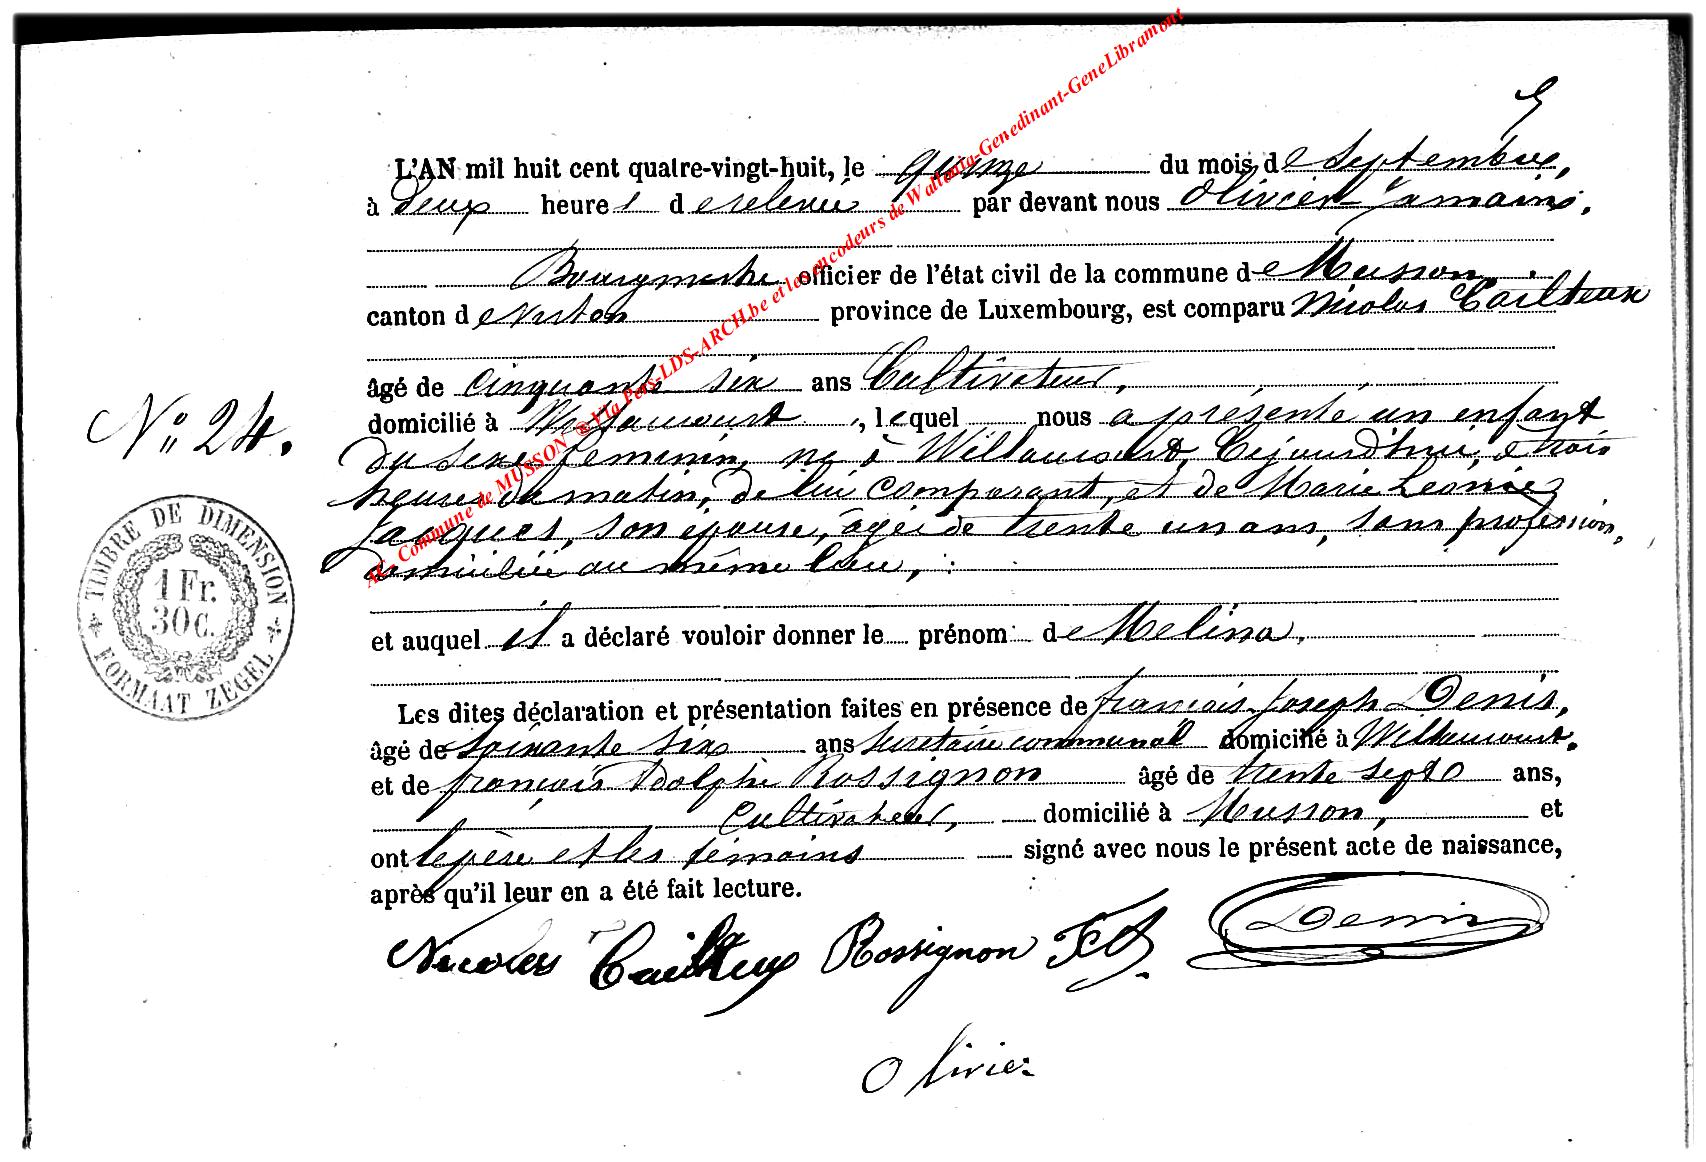 L'AN mil huit cent quatre-vingt-huit, le quinze du mois de Septembre,
à deux heures de relevée par devant nous Olivier Jamain,
Bourgmestre officier de l'état civil de la commune de Musson,
canton de Virton province de Luxembourg, est comparu Nicolas Cailteux
âgé de cinquante six ans Cultivateur,
domicilié à Willancourt, lequel nous a présenté un enfant
du sexe féminin, né à Willancourt, Cejourd'hui, à trois
heures du matin, de lui comparant, et de Marie Leonie
Jacques, son épouse, âgée de trente un ans, sans profession,
domiciliée au même lieu,
et auquel il a déclaré vouloir donner le prénom de Melina,
Les dites déclaration et présentation faites en présence de françois Joseph Denis,
âgé de soixante six ans Secretaire communal domicilié à Willancourt,
et de françois Adolphe Rossignon âgé de trente sept ans,
cultivateur, domicilié à Musson, et
ont le père et les témoins signé avec nous le présent acte de naissance,
après qu'il leur en a été fait lecture.
Nicolas Cailteux Rossignon F A Denis
Olivier
N° 24.
TIMBRE DE DIMENSION
1 Fr.
30 C.
FORMAAT ZEGEL
Commune de MUSSON @ Via Pros-LDS-ARCH.be et les encodeurs de Wallonia-Genedinant-GeneLibramont